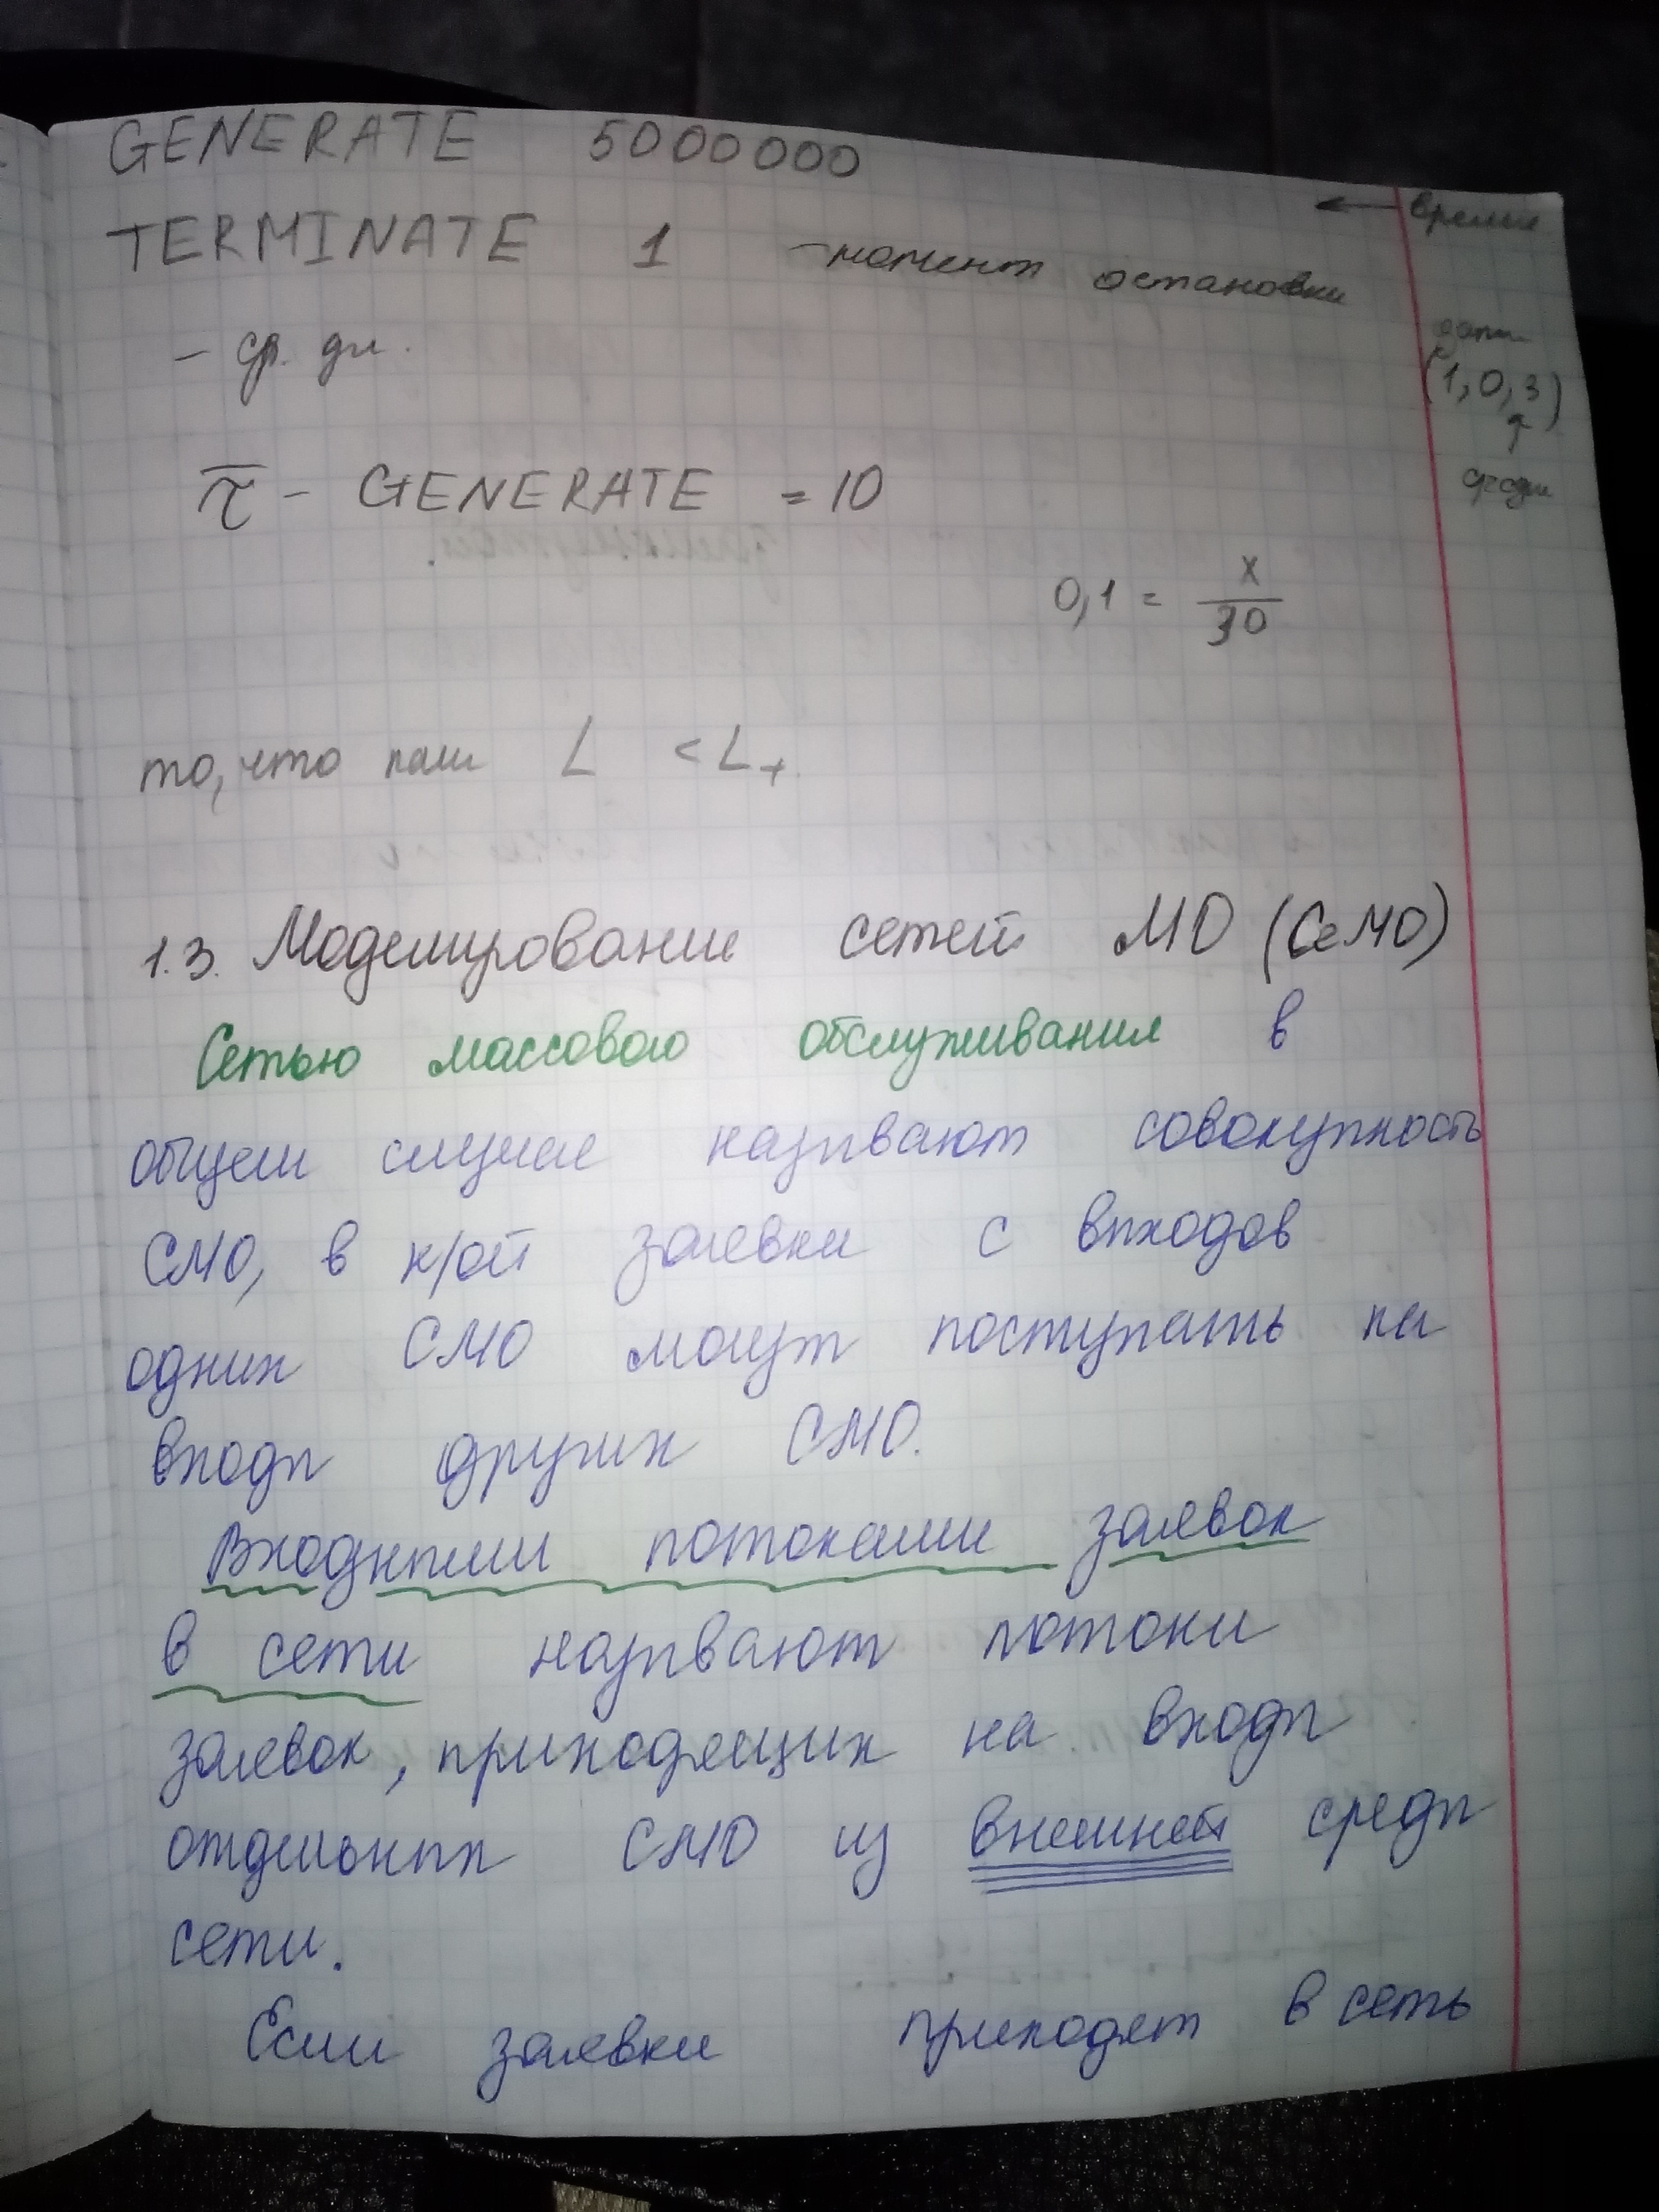 GENERATE 5000000
← время
TERMINATE 1 - момент остановки
- ср. дл.
(1, 0, 3)
τ̅ - GENERATE = 10
0,1 = x/30
то, что нам L < L₊
1.3. Моделирование сетей МО (СеМО)
Сетью массового обслуживания в
общем случае называют совокупность
СМО, в к/ой заявки с выходов
одних СМО могут поступать на
входы других СМО.
Входными потоками заявок
в сети называют потоки
заявок, приходящих на входы
отдельных СМО из внешней среды
сети.
Если заявки приходят в сеть